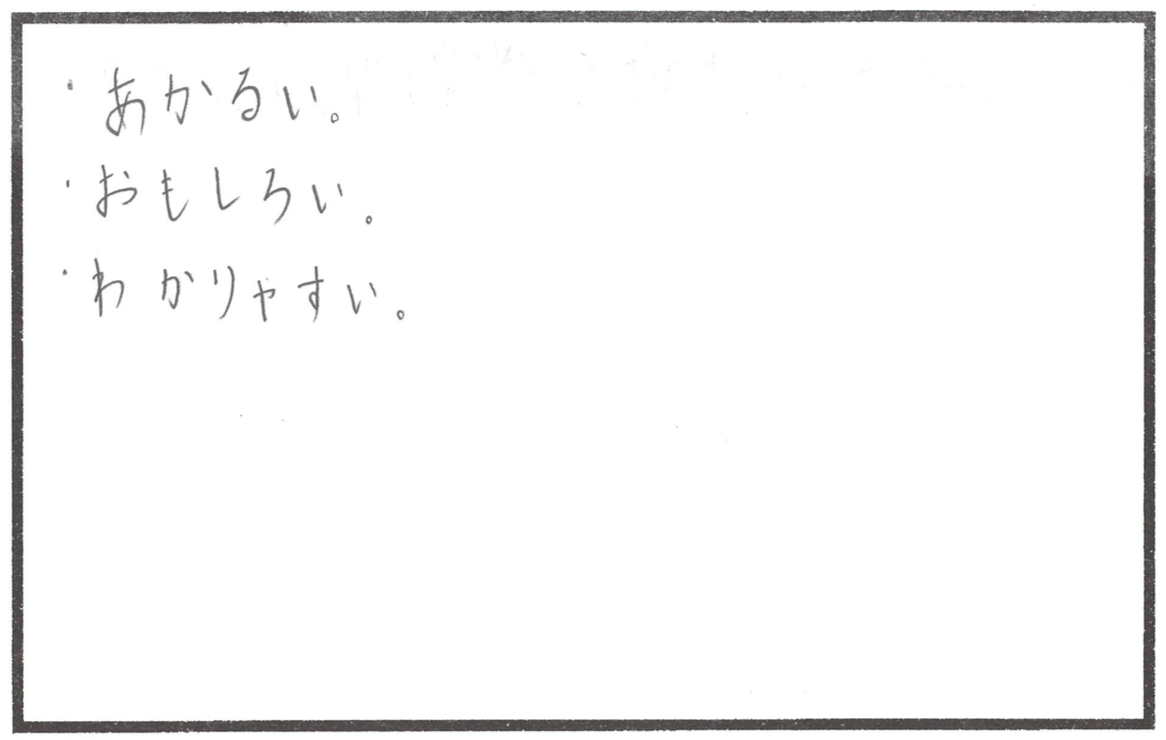 ・あかるい。
・おもしろい。
・わかりやすい。